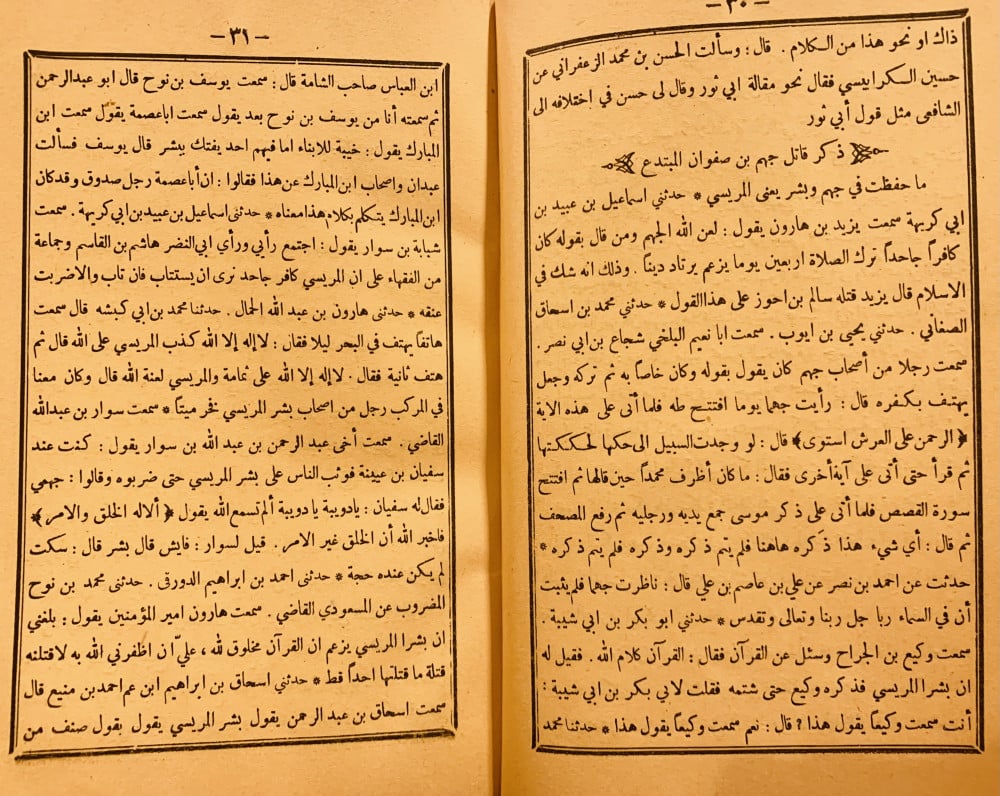 — ٣٠ —
ذاك او نحو هذا من الكلام . قال : وسألت الحسن بن محمد الزعفراني عن
حسين الكرابيسي فقال نحو مقالة ابي ثور وقال لى حسن في اختلافه الى
الشافعى مثل قول أبي ثور
ذكر قاتل جهم بن صفوان المبتدع
ما حفظت في جهم وبشر يعنى المريسي * حدثني اسماعيل بن عبيد بن
ابي كريهة سمعت يزيد بن هارون يقول : لعن الله الجهم ومن قال بقوله كان
كافراً جاحداً ترك الصلاة اربعين يوما يزعم يرتاد ديناً . وذلك انه شك في
الاسلام قال يزيد قتله سالم بن احوز على هذا القول * حدثني محمد بن اسحاق
الصغاني . حدثني يحيى بن ايوب . سمعت ابا نعيم البلخي شجاع بن ابي نصر .
سمعت رجلا من أصحاب جهم كان يقول بقوله وكان خاصاً به ثم تركه وجعل
يهتف بكفره قال : رأيت جهما يوما افتتح طه فلما أتى على هذه الاية
﴿ الرحمن على العرش استوى ﴾ قال : لو وجدت السبيل الى حكها لحككتها
ثم قرأ حتى أتى على آية أخرى فقال : ما كان أظرف محمداً حين قالها ثم افتتح
سورة القصص فلما أتى على ذكر موسى جمع يديه ورجليه ثم رفع المصحف
ثم قال : أي شيء هذا ذكره هاهنا فلم يتم ذكره وذكره فلم يتم ذكره *
حدثت عن احمد بن نصر عن علي بن عاصم بن علي قال : ناظرت جهما فلم يثبت
أن في السماء ربا جل ربنا وتعالى وتقدس * حدثني ابو بكر بن ابي شيبة .
سمعت وكيع بن الجراح وسئل عن القرآن فقال : القرآن كلام الله . فقيل له
ان بشرا المريسي فذكره وكيع حتى شتمه فقلت لابي بكر بن ابي شيبة :
أنت سمعت وكيعاً يقول هذا ? قال : نعم سمعت وكيعاً يقول هذا * حدثنا محمد
— ٣١ —
ابن العباس صاحب الشامة قال : سمعت يوسف بن نوح قال ابو عبد الرحمن
ثم سمعته أنا من يوسف بن نوح بعد يقول سمعت اباعصمة يقول سمعت ابن
المبارك يقول : خيبة للابناء اما فيهم احد يفتك ببشر قال يوسف فسألت
عبدان واصحاب ابن المبارك عن هذا فقالوا : ان أباعصمة رجل صدوق وقد كان
ابن المبارك يتكلم بكلام هذا معناه * حدثني اسماعيل بن عبيد بن ابي كريهة . سمعت
شبابة بن سوار يقول : اجتمع رأيي ورأي ابي النضر هاشم بن القاسم وجماعة
من الفقهاء على ان المريسي كافر جاحد نرى ان يستتاب فان تاب والا ضربت
عنقه * حدثني هارون بن عبد الله الحمال . حدثنا محمد بن ابي كبشه قال سمعت
هاتفاً يهتف في البحر ليلا فقال : لا اله إلا الله كذب المريسي على الله قال ثم
هتف ثانية فقال . لا اله إلا الله على ثمامة والمريسي لعنة الله قال وكان معنا
في المركب رجل من اصحاب بشر المريسي نخر ميتاً * سمعت سوار بن عبد الله
القاضي . سمعت أخى عبد الرحمن بن عبد الله بن سوار يقول : كنت عند
سفيان بن عيينة فوثب الناس على بشر المريسي حتى ضربوه وقالوا : جهمي
فقال له سفيان : يا دويبة يا دويبة ألم تسمع الله يقول ﴿ ألا له الخلق والامر ﴾
فاخبر الله أن الخلق غير الامر . قيل لسوار : فايش قال بشر قال : سكت
لم يكن عنده حجة * حدثني احمد بن ابراهيم الدورقى . حدثني محمد بن نوح
المضروب عن المسعودي القاضي . سمعت هارون امير المؤمنين يقول : بلغني
ان بشرا المريسي يزعم ان القرآن مخلوق لله ، علي أن اظفرني الله به لاقتلنه
قتلة ما قتلتها احداً قط * حدثني اسحاق بن ابراهيم ابن عم احمد بن منيع قال
سمعت اسحاق بن عبد الرحمن يقول بشر المريسي يقول بقول صنف من